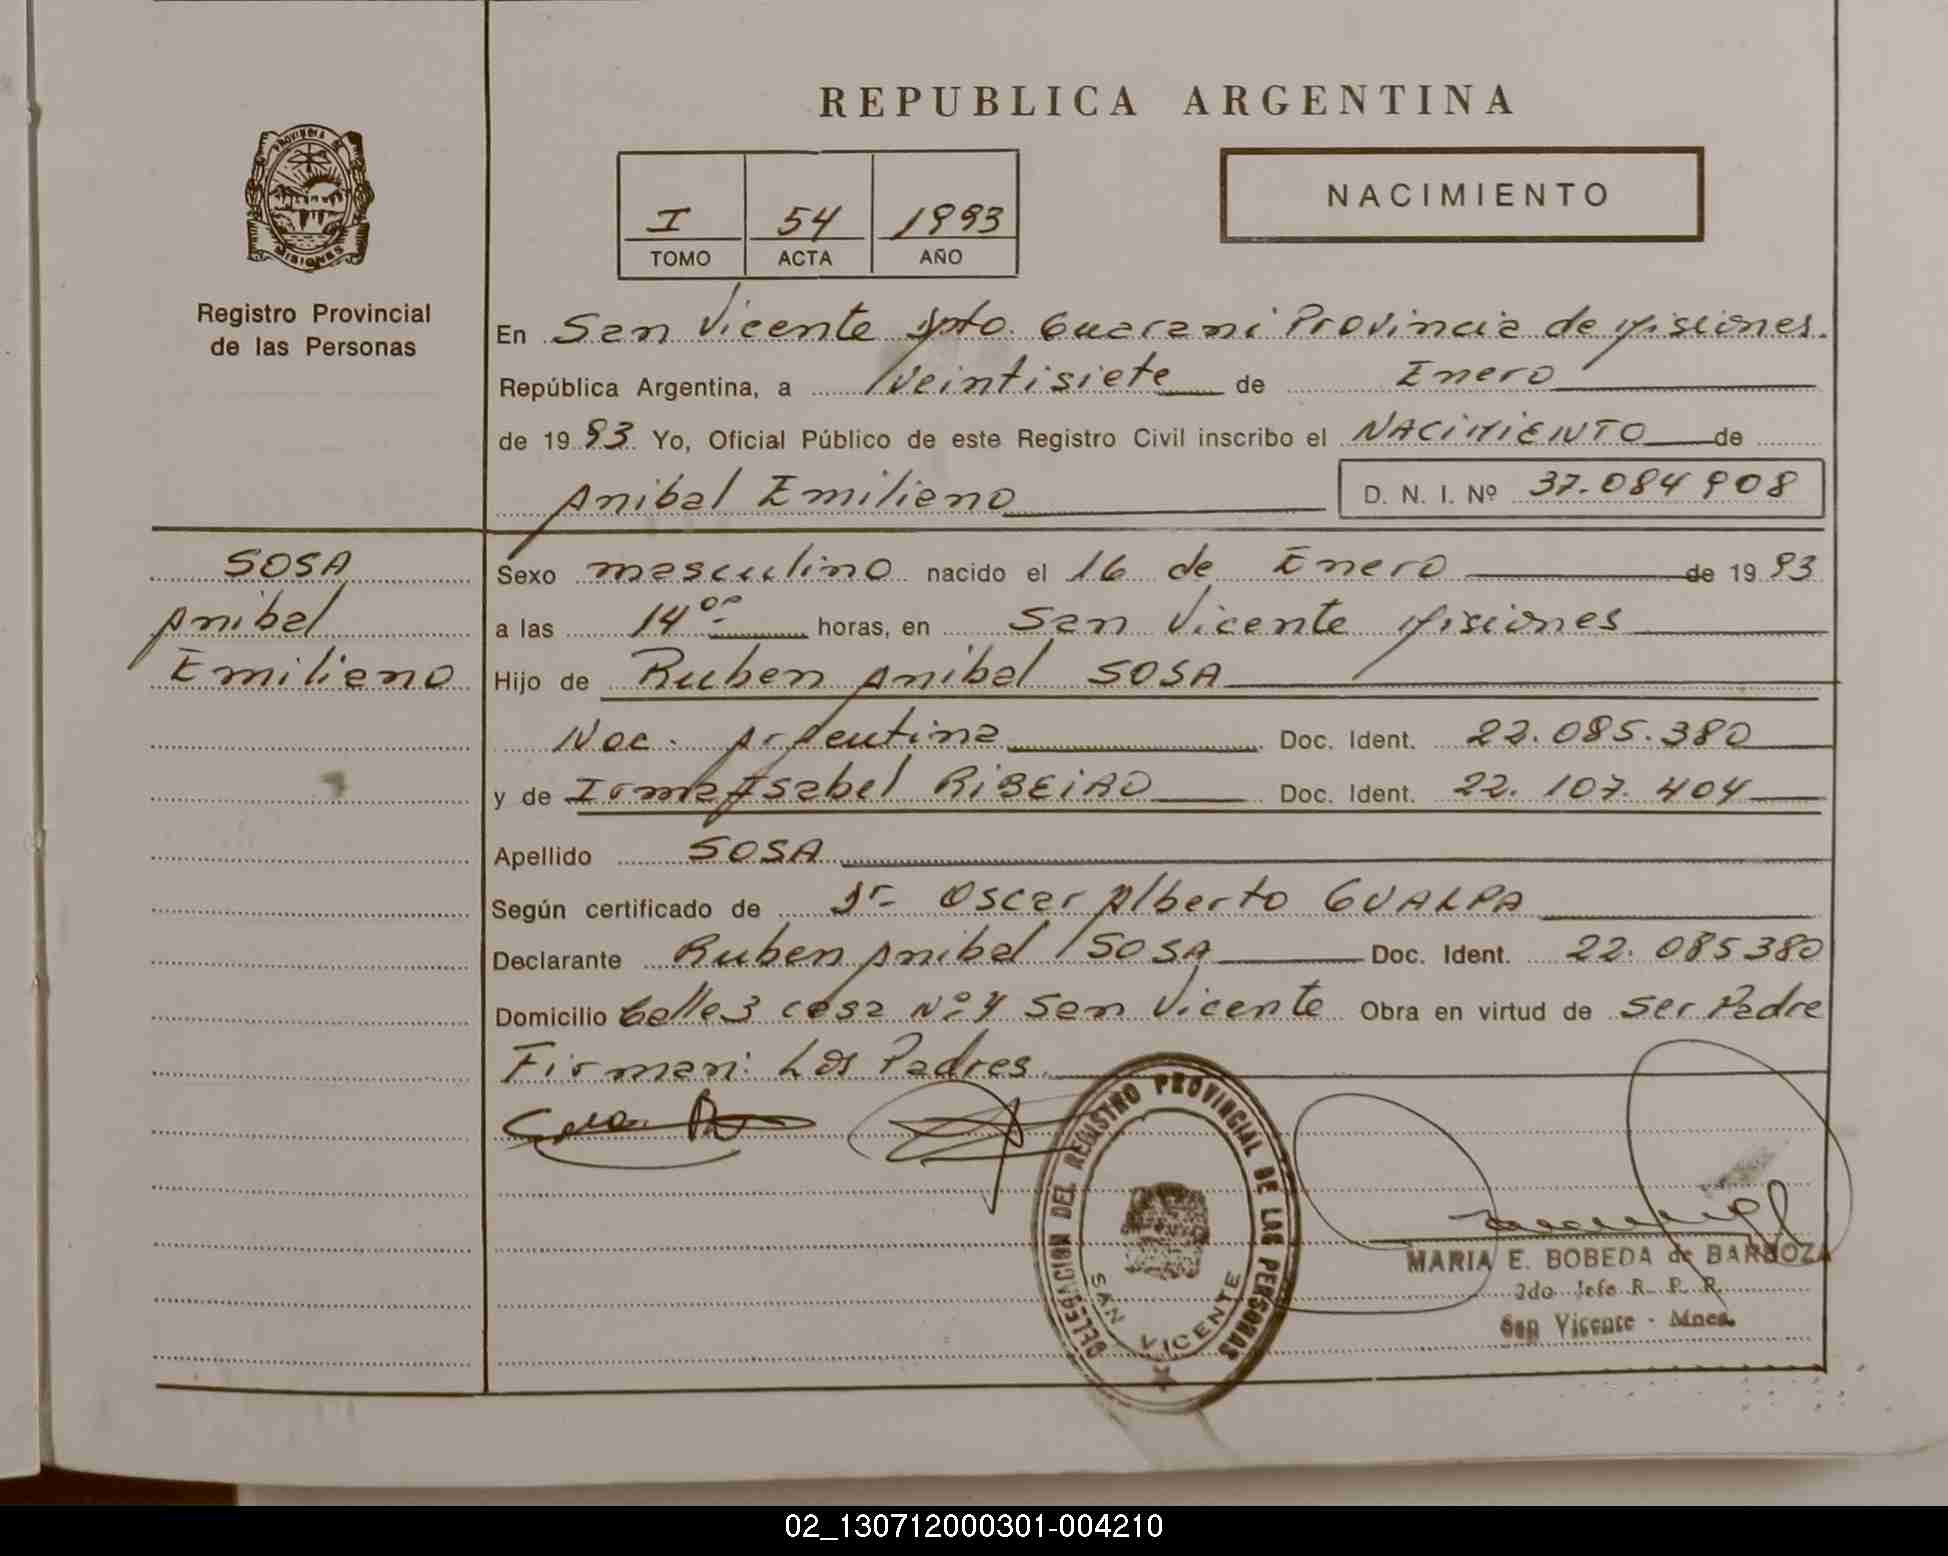 REPUBLICA ARGENTINA
PROVINCIA DE
MISIONES
Registro Provincial
de las Personas
I 54 1993
TOMO ACTA AÑO
NACIMIENTO
En San Vicente Dpto. Guarani Provincia de Misiones.
República Argentina, a Veintisiete de Enero
de 1993 Yo, Oficial Público de este Registro Civil inscribo el NACIMIENTO de
Anibal Emiliano D. N. I. Nº 37.084908
SOSA
Anibal
Emiliano
Sexo masculino nacido el 16 de Enero de 1993
a las 14⁰⁰ horas, en San Vicente Misiones
Hijo de Ruben Anibal SOSA
Nac. Argentina Doc. Ident. 22.085.380
y de Irma Isabel RIBEIRO Doc. Ident. 22.107.404
Apellido SOSA
Según certificado de Dr- Oscar Alberto GUALPA
Declarante Ruben Anibal SOSA Doc. Ident. 22.085380
Domicilio Calle 3 casa Nº 4 San Vicente Obra en virtud de ser Padre
Firman: Los Padres
DELEGACION DEL REGISTRO PROVINCIAL DE LAS PERSONAS
SAN VICENTE
MARIA E. BOBEDA de BARBOZA
2do Jefe R. P. P.
San Vicente - Mnes.
02_130712000301-004210